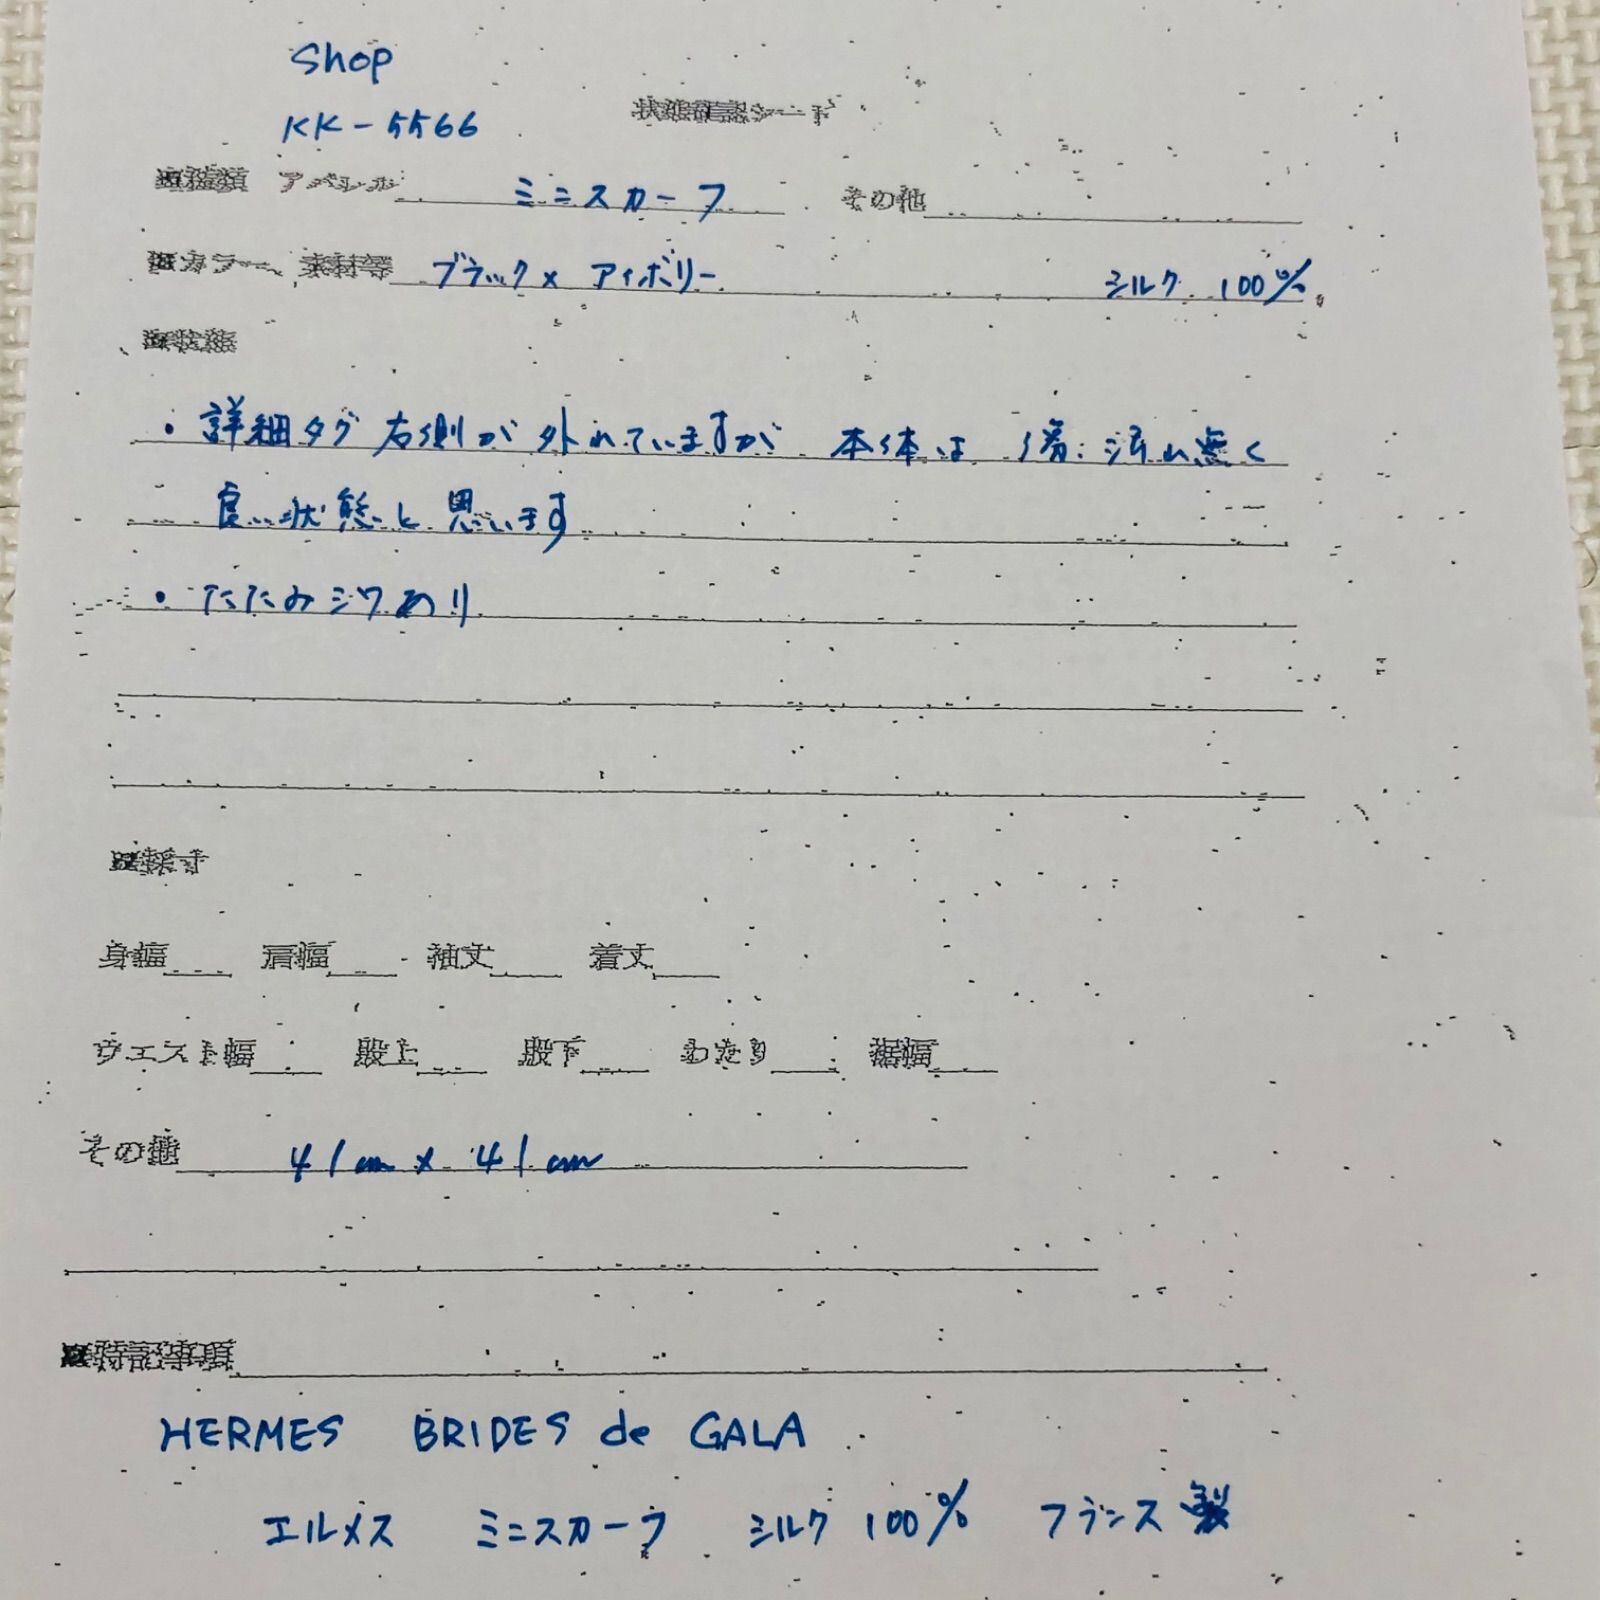 Shop
KK-5566
状態確認シート
■種類 アパレル ミニスカーフ その他
■カラー、素材等 ブラック×アイボリー シルク 100%
■状態
・詳細タグ右側が外れていますが 本体は傷:汚れ無く
良い状態と思います
・たたみジワあり
■採寸
身幅 肩幅 袖丈 着丈
ウエスト幅 股上 股下 わたり 裾幅
その他 41cm×41cm
■特記事項
HERMES BRIDES de GALA
エルメス ミニスカーフ シルク 100% フランス製